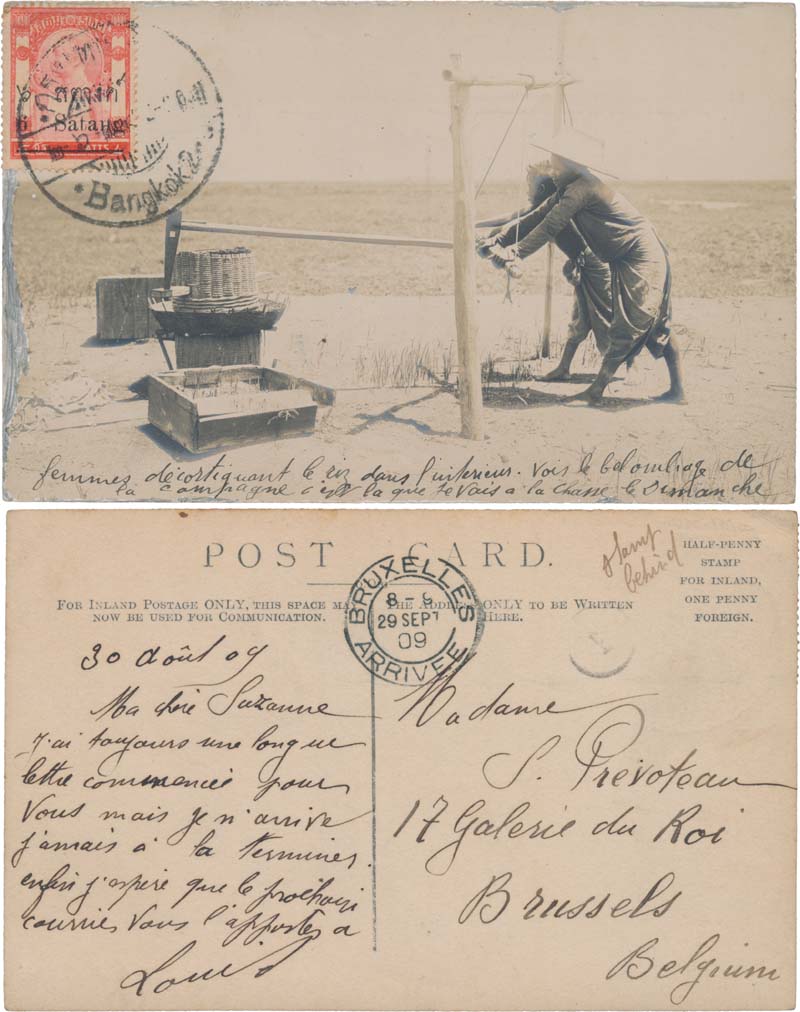 Satang
Bangkok 2
femmes décortiquant le riz dans l'interieur. Vois le bel ombrage de
la campagne c'est la que je vais a la chasse le Dimanche
POST CARD.
stamp
behind
HALF-PENNY
STAMP
FOR INLAND,
ONE PENNY
FOREIGN.
FOR INLAND POSTAGE ONLY, THIS SPACE MA
NOW BE USED FOR COMMUNICATION.
THE ADDRESS ONLY TO BE WRITTEN
HERE.
BRUXELLES
8-9
29 SEPT
09
ARRIVEE
30 août 09
Ma chère Suzanne
J'ai toujours une longue
lettre commencée pour
vous mais je n'arrive
jamais à la terminer.
enfin j'espère que le prochain
courrier vous l'apportera
Louis
Madame
S. Prévoteau
17 Galerie du Roi
Brussels
Belgium